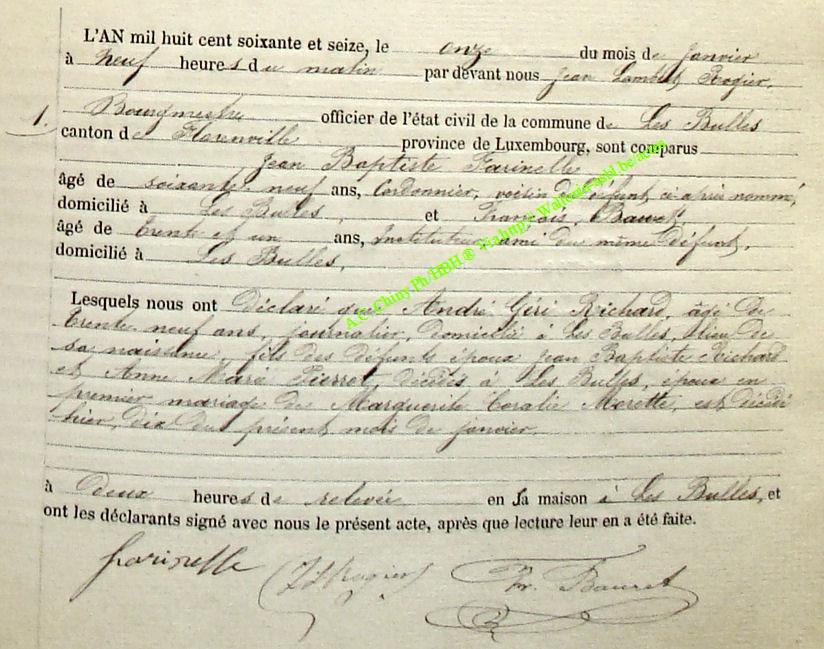 L'AN mil huit cent soixante et seize, le onze du mois de Janvier
à neuf heures du matin par devant nous Jean Lambert Rogier,
1. Bourgmestre officier de l'état civil de la commune de Les Bulles
canton de Florenville province de Luxembourg, sont comparus
Jean Baptiste Farinelle
âgé de soixante neuf ans, Cordonnier, voisin du défunt, ci après nommé,
domicilié à Les Bulles, et François Bauret,
âgé de trente et un ans, Instituteur, ami du même Défunt,
domicilié à Les Bulles,
Lesquels nous ont Déclaré que André Géri Richard, âgé de
trente neuf ans, journalier, domicilié à Les Bulles, lieu de
sa naissance, fils des défunts époux Jean Baptiste Richard
et Anne Marie Pierrot, décédés à Les Bulles, époux en
premier mariage de Marguerite Coralie Morette, est décédé
hier, dix du présent mois de janvier,
à Deux heures de relevée en sa maison à Les Bulles, et
ont les déclarants signé avec nous le présent acte, après que lecture leur en a été faite.
Farinelle JLRogier Fr. Bauret
A.C. Chiny Ph/HBH ®